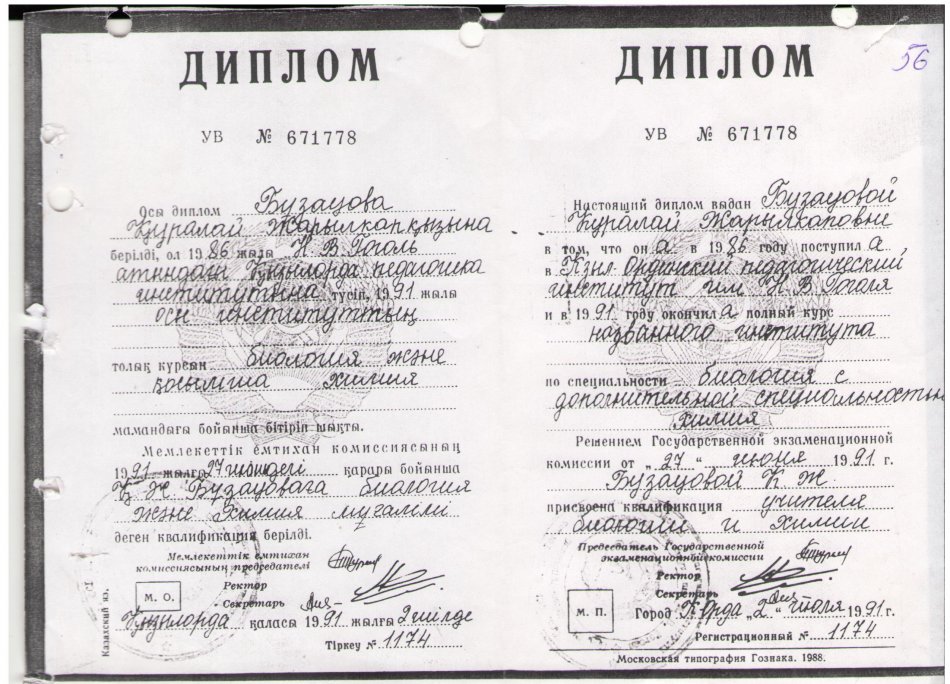 56
ДИПЛОМ
УВ № 671778
Осы диплом Бузауова
Құралай Жарылқапқызына
берілді, ол 1986 жылы Н В Гоголь
атындағы Қызылорда педагогика
институтына түсіп, 1991 жылы
осы институттың
толық курсын биология және
қосымша химия
мамандығы бойынша бітіріп шықты.
Мемлекеттік емтихан комиссиясының
1991 жылғы 27 июндегі қарары бойынша
Қ Ж Бузауоваға биология
және химия мұғалімі
деген квалификация берілді.
Мемлекеттік емтихан
комиссиясының председателі
Ректор
Секретарь
М. О.
Қызылорда қаласы 1991 жылғы 2 шілде
Тіркеу № 1174
Казахский яз.
ДИПЛОМ
УВ № 671778
Настоящий диплом выдан Бузауовой
Куралай Жарылкаповне
в том, что она в 1986 году поступила
в Кзыл Ординский педагогический
институт им Н. В. Гоголя
и в 1991 году окончила полный курс
названного института
по специальности биология с
дополнительной специальностью
химия
Решением Государственной экзаменационной
комиссии от „27“ июня 1991 г.
Бузауовой К Ж
присвоена квалификация учителя
биологии и химии
Председатель Государственной
экзаменационной комиссии
Ректор
Секретарь
М. П.
Город К Орда „2“ июля 1991 г.
Регистрационный № 1174
Московская типография Гознака. 1988.